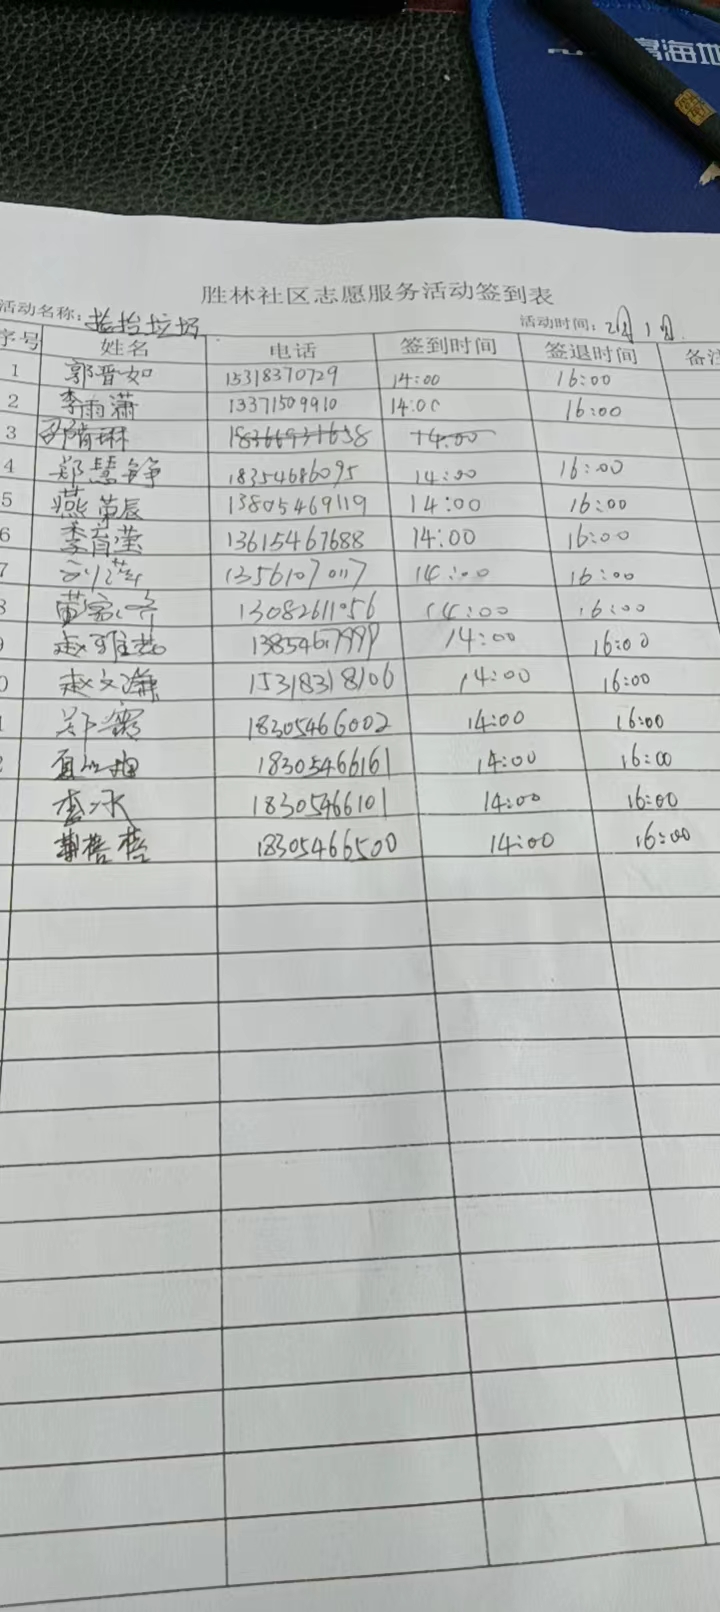 富海地
胜林社区志愿服务活动签到表
活动名称：捡拾垃圾 活动时间：2月1日
序号 姓名 电话 签到时间 签退时间 备注
1 郭晋如 15318370729 14:00 16:00
2 李雨潇 13371509910 14:00 16:00
3 18366931658 14:00
4 郑慧铮 18354686095 14:00 16:00
5 燕荣辰 13805469119 14:00 16:00
6 李育莹 13615467688 14:00 16:00
7 13561070117 14:00 16:00
13082611056 14:00 16:00
赵雅茹 13854671999 14:00 16:00
赵文谦 15318318106 14:00 16:00
18305466002 14:00 16:00
18305466161 14:00 16:00
李冰 18305466101 14:00 16:00
18305466500 14:00 16:00